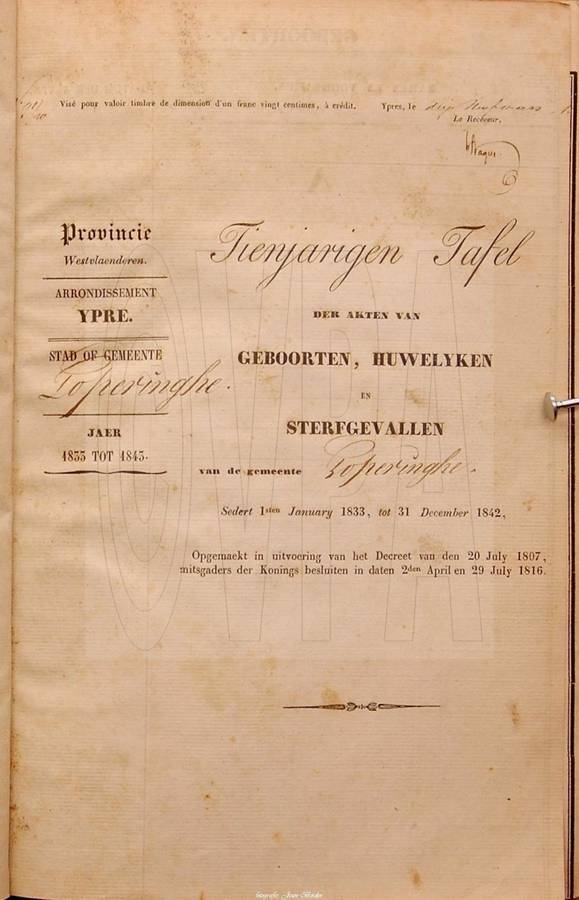 Visé pour valoir timbre de dimension d'un franc vingt centimes, à crédit. Ypres, le
Le Receveur,
Provincie
Westvlaenderen.
ARRONDISSEMENT
YPRE.
STAD OF GEMEENTE
Poperinghe.
JAER
1833 TOT 1843.
Tienjarigen Tafel
DER AKTEN VAN
GEBOORTEN, HUWELYKEN
EN
STERFGEVALLEN
van de gemeente Poperinghe.
Sedert 1sten January 1833, tot 31 December 1842,
Opgemaekt in uitvoering van het Decreet van den 20 July 1807,
mitsgaders der Konings besluiten in daten 2den April en 29 July 1816.
OVPA